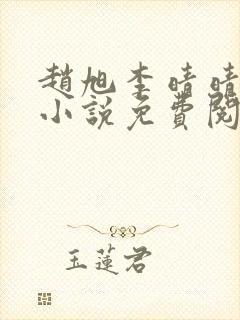 趙旭李晴晴
小說免費閱
玉蓮君